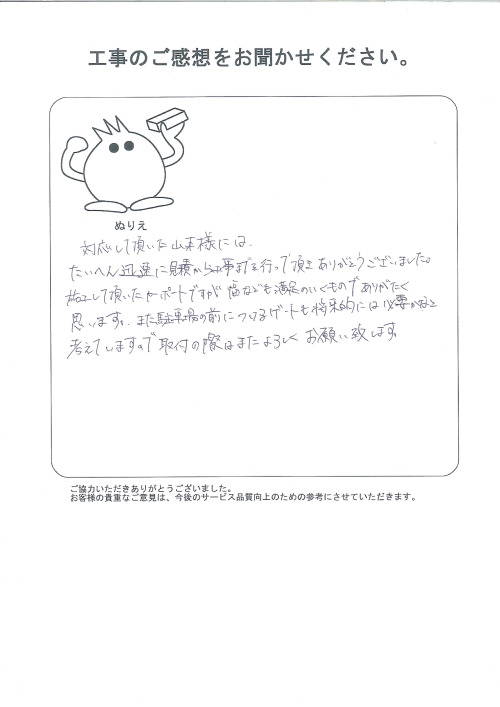 工事のご感想をお聞かせください。
ぬりえ
対応して頂いた山本様には、
たいへん迅速に見積から工事までを行って頂き ありがとうございました。
して頂いたカーポートですが 幅なども満足のいくものでありがたく
思います。また駐車場の前につけるゲートも将来的には必要かなと
考えてしますので 取付の際はまたよろしく お願い致します
ご協力いただきありがとうございました。
お客様の貴重なご意見は、今後のサービス品質向上のための参考にさせていただきます。